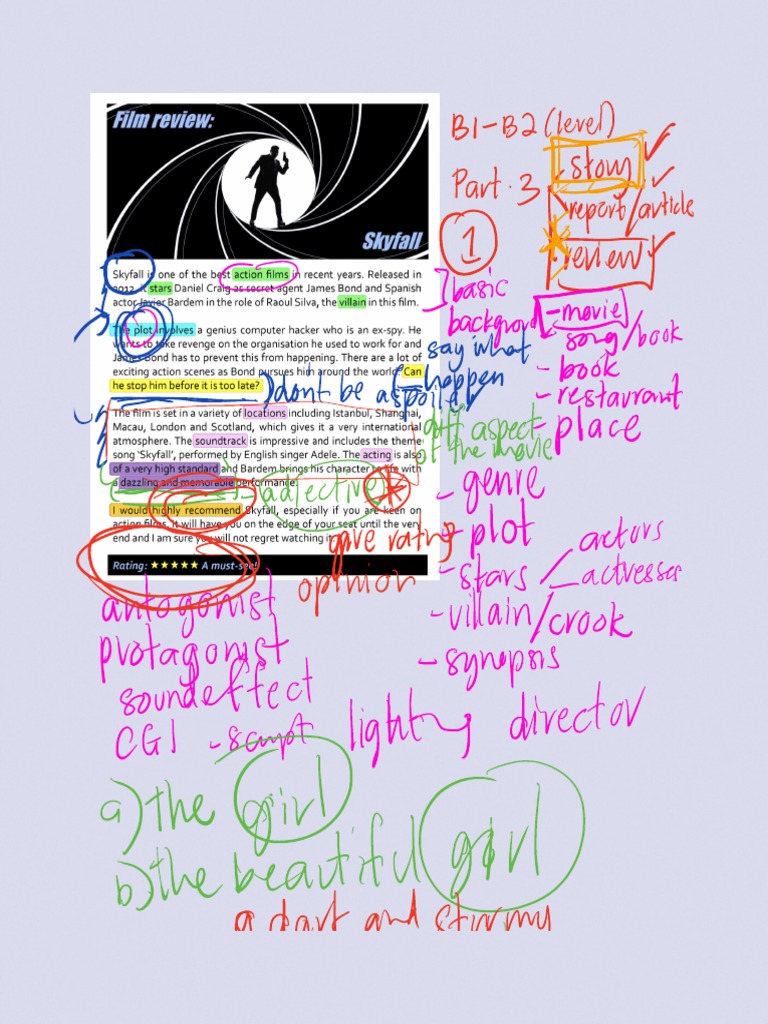 Film review:
Skyfall
Skyfall is one of the best action films in recent years. Released in
2012, it stars Daniel Craig as secret agent James Bond and Spanish
actor Javier Bardem in the role of Raoul Silva, the villain in this film.
The plot involves a genius computer hacker who is an ex-spy. He
wants to take revenge on the organisation he used to work for and
James Bond has to prevent this from happening. There are a lot of
exciting action scenes as Bond pursues him around the world. Can
he stop him before it is too late?
The film is set in a variety of locations including Istanbul, Shanghai,
Macau, London and Scotland, which gives it a very international
atmosphere. The soundtrack is impressive and includes the theme
song ‘Skyfall’, performed by English singer Adele. The acting is also
of a very high standard and Bardem brings his character to life with
a dazzling and memorable performance.
I would highly recommend Skyfall, especially if you are keen on
action films. It will have you on the edge of your seat until the very
end and I am sure you will not regret watching it.
Rating: ★★★★★ A must-see!
B1-B2 (level)
Part 3
story
report/article
review
1
basic
backgrond
say what
happen
don't be a spoiler
diff aspect
of the movie
adjective
give rating
opinion
-movie
song/book
- book
- restaurant
- place
- genre
- plot
- stars / actors
- actresses
- villain/crook
- synopsis
antogonist
protagonist
soundeffect
CGI - script lighting director
a) the girl
b) the beautiful girl
a dark and stormy